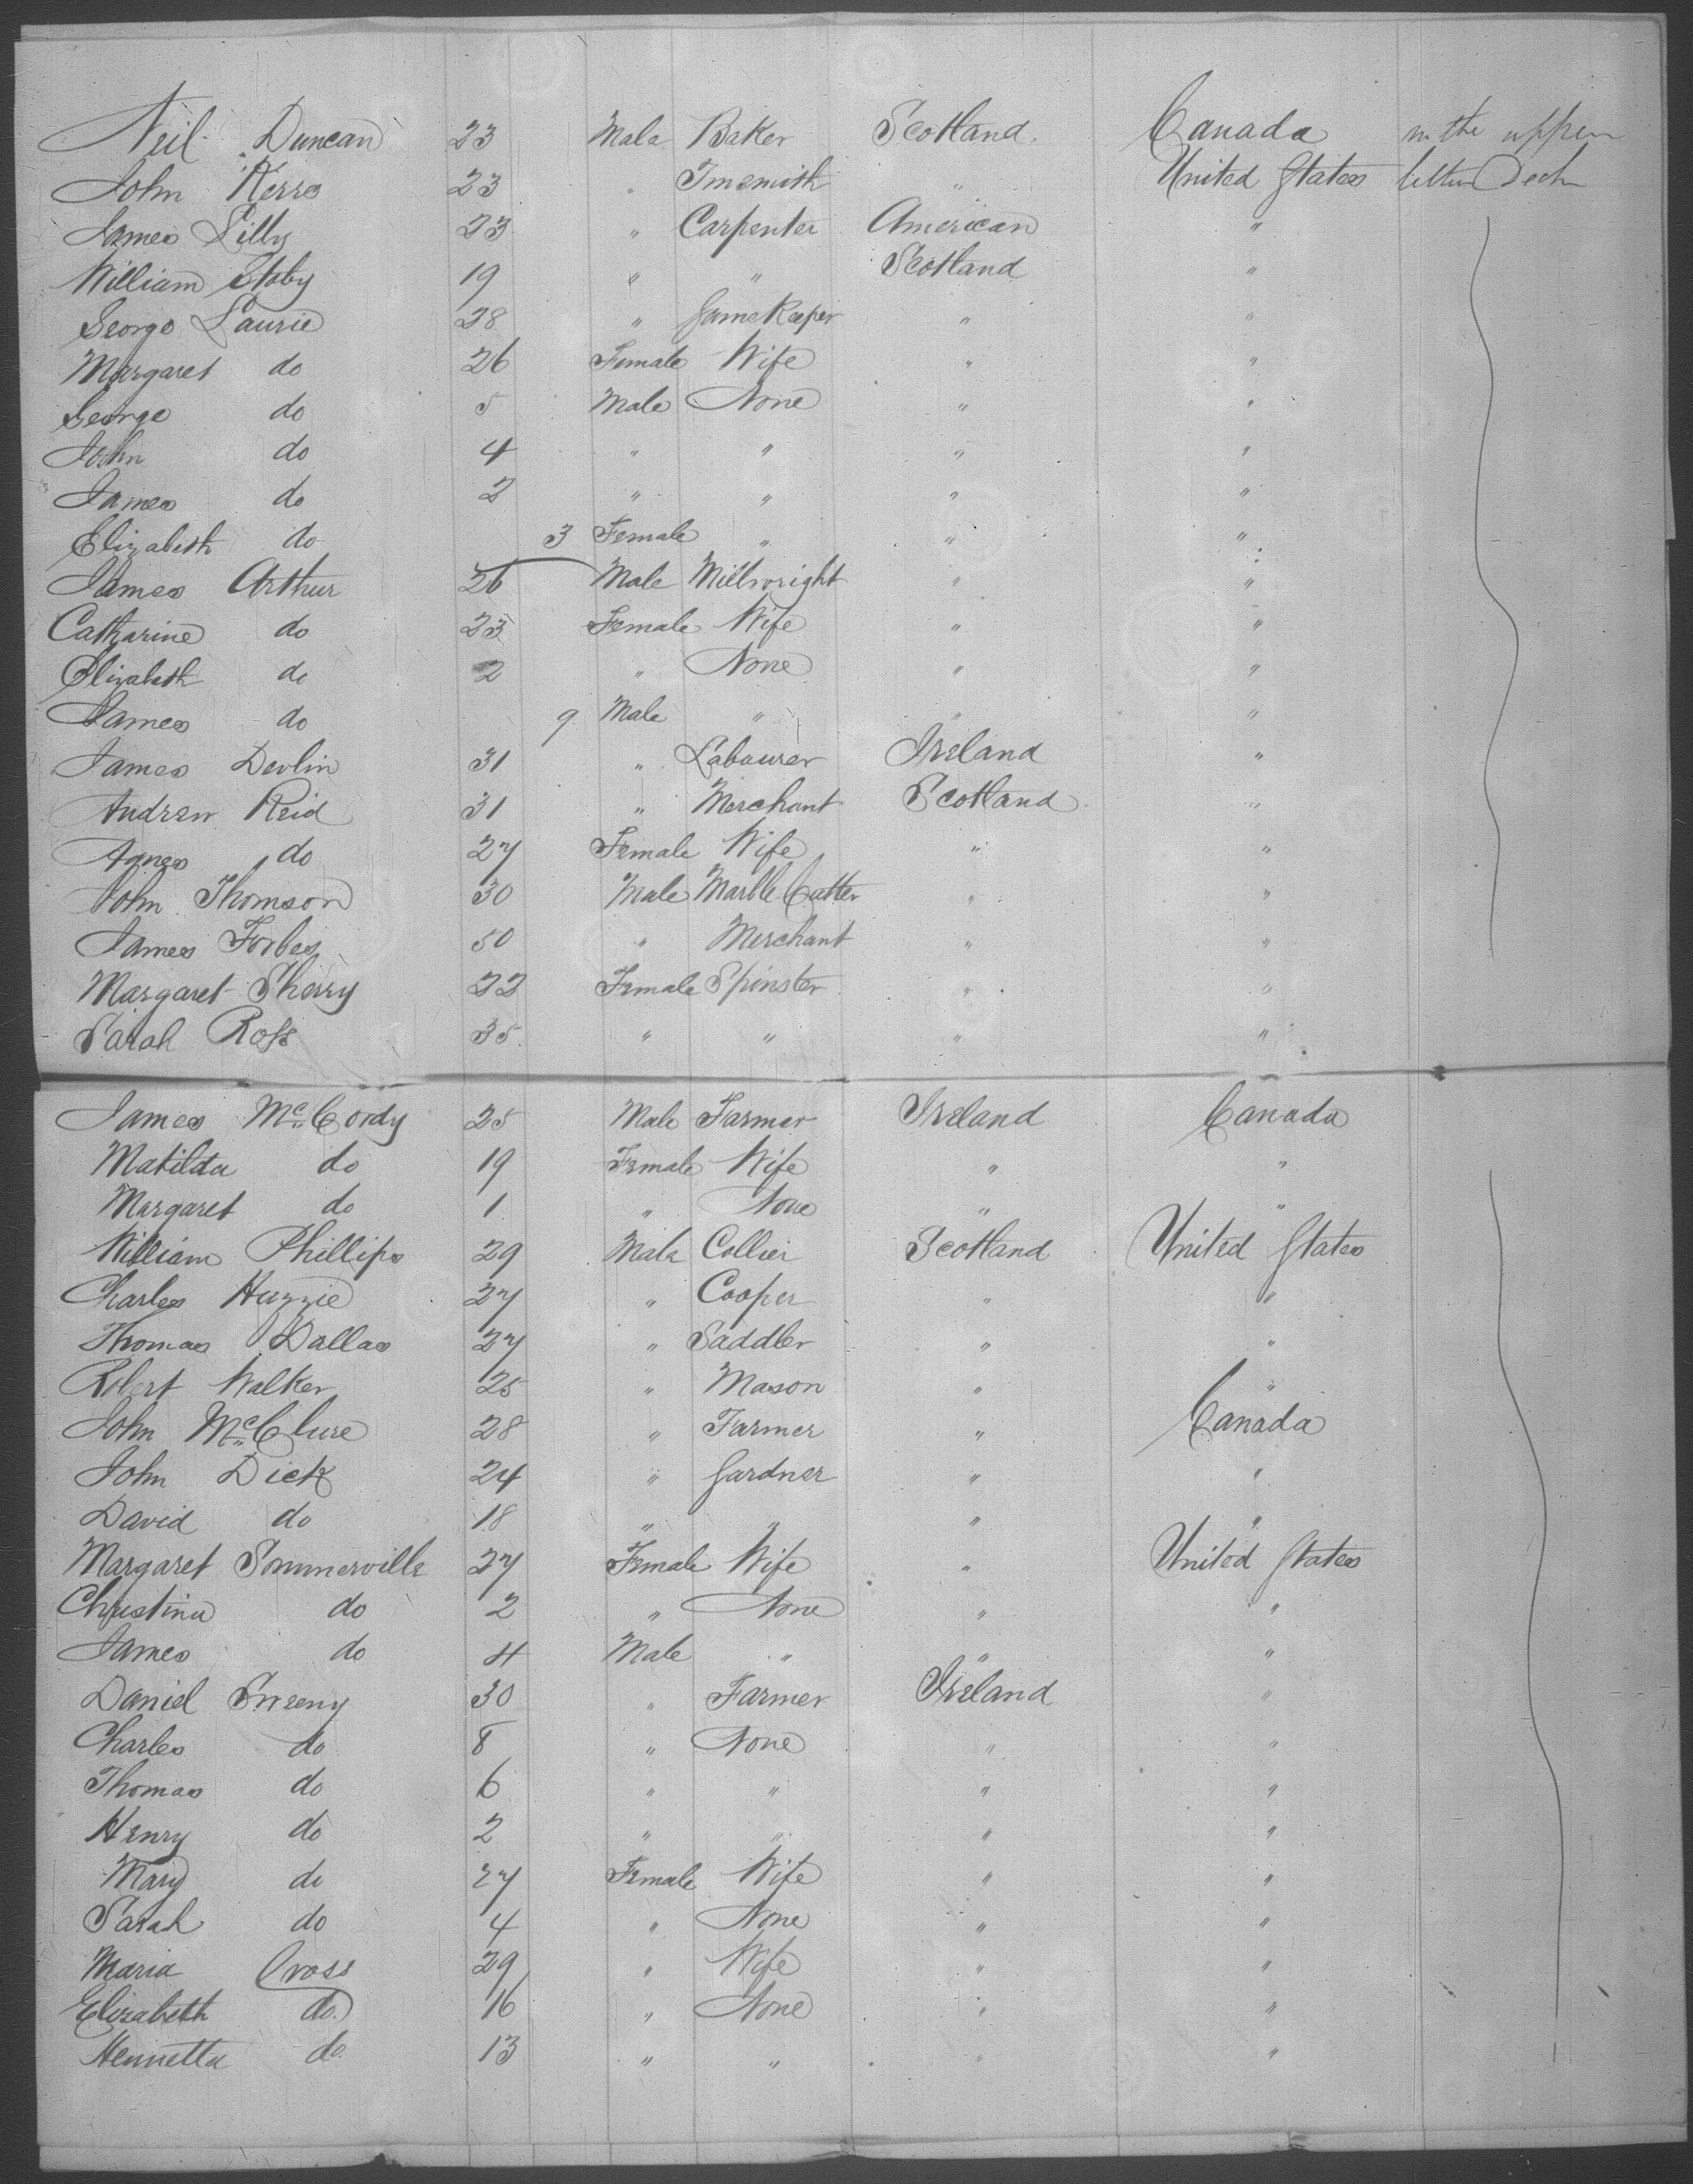 Neil Duncan 23 Male Baker Scotland Canada in the upper
John Kerr 23 " Tinsmith " United States between Deck
James Lilly 23 " Carpenter American "
William 19 " " Scotland "
George Laurie 28 " GameKeeper " "
Margaret do 26 Female Wife " "
George do 5 Male None " "
John do 4 " " " "
James do 2 " " " "
Elizabeth do 3 Female " " "
James Arthur 26 Male Millwright " "
Catharine do 23 Female Wife " "
Elizabeth do 2 " None " "
James do 9 Male " " "
James Devlin 31 " Labourer Ireland "
Andrew Reid 31 " Merchant Scotland "
Agnes do 27 Female Wife " "
John Thomson 30 Male Marble Cutter " "
James Forbes 50 " Merchant " "
Margaret Sherry 22 Female Spinster " "
Sarah Ross 35 " " " "
James McCordy 25 Male Farmer Ireland Canada
Matilda do 19 Female Wife " "
Margaret do 1 " None " "
William Phillips 29 Male Collier Scotland United States
Charles Huzzie 27 " Cooper " "
Thomas Dallas 27 " Saddler " "
Robert Walker 25 " Mason " "
John McClure 28 " Farmer " Canada
John Dick 24 " Gardner " "
David do 18 " " " "
Margaret Sommerville 27 Female Wife " United States
Christina do 2 " None " "
James do 4 Male " " "
Daniel Sweeny 30 " Farmer Ireland "
Charles do 8 " None " "
Thomas do 6 " " " "
Henry do 2 " " " "
Mary do 27 Female Wife " "
Sarah do 4 " None " "
Maria Cross 29 " Wife " "
Elizabeth do 16 " None " "
Hennetta do 13 " " " "